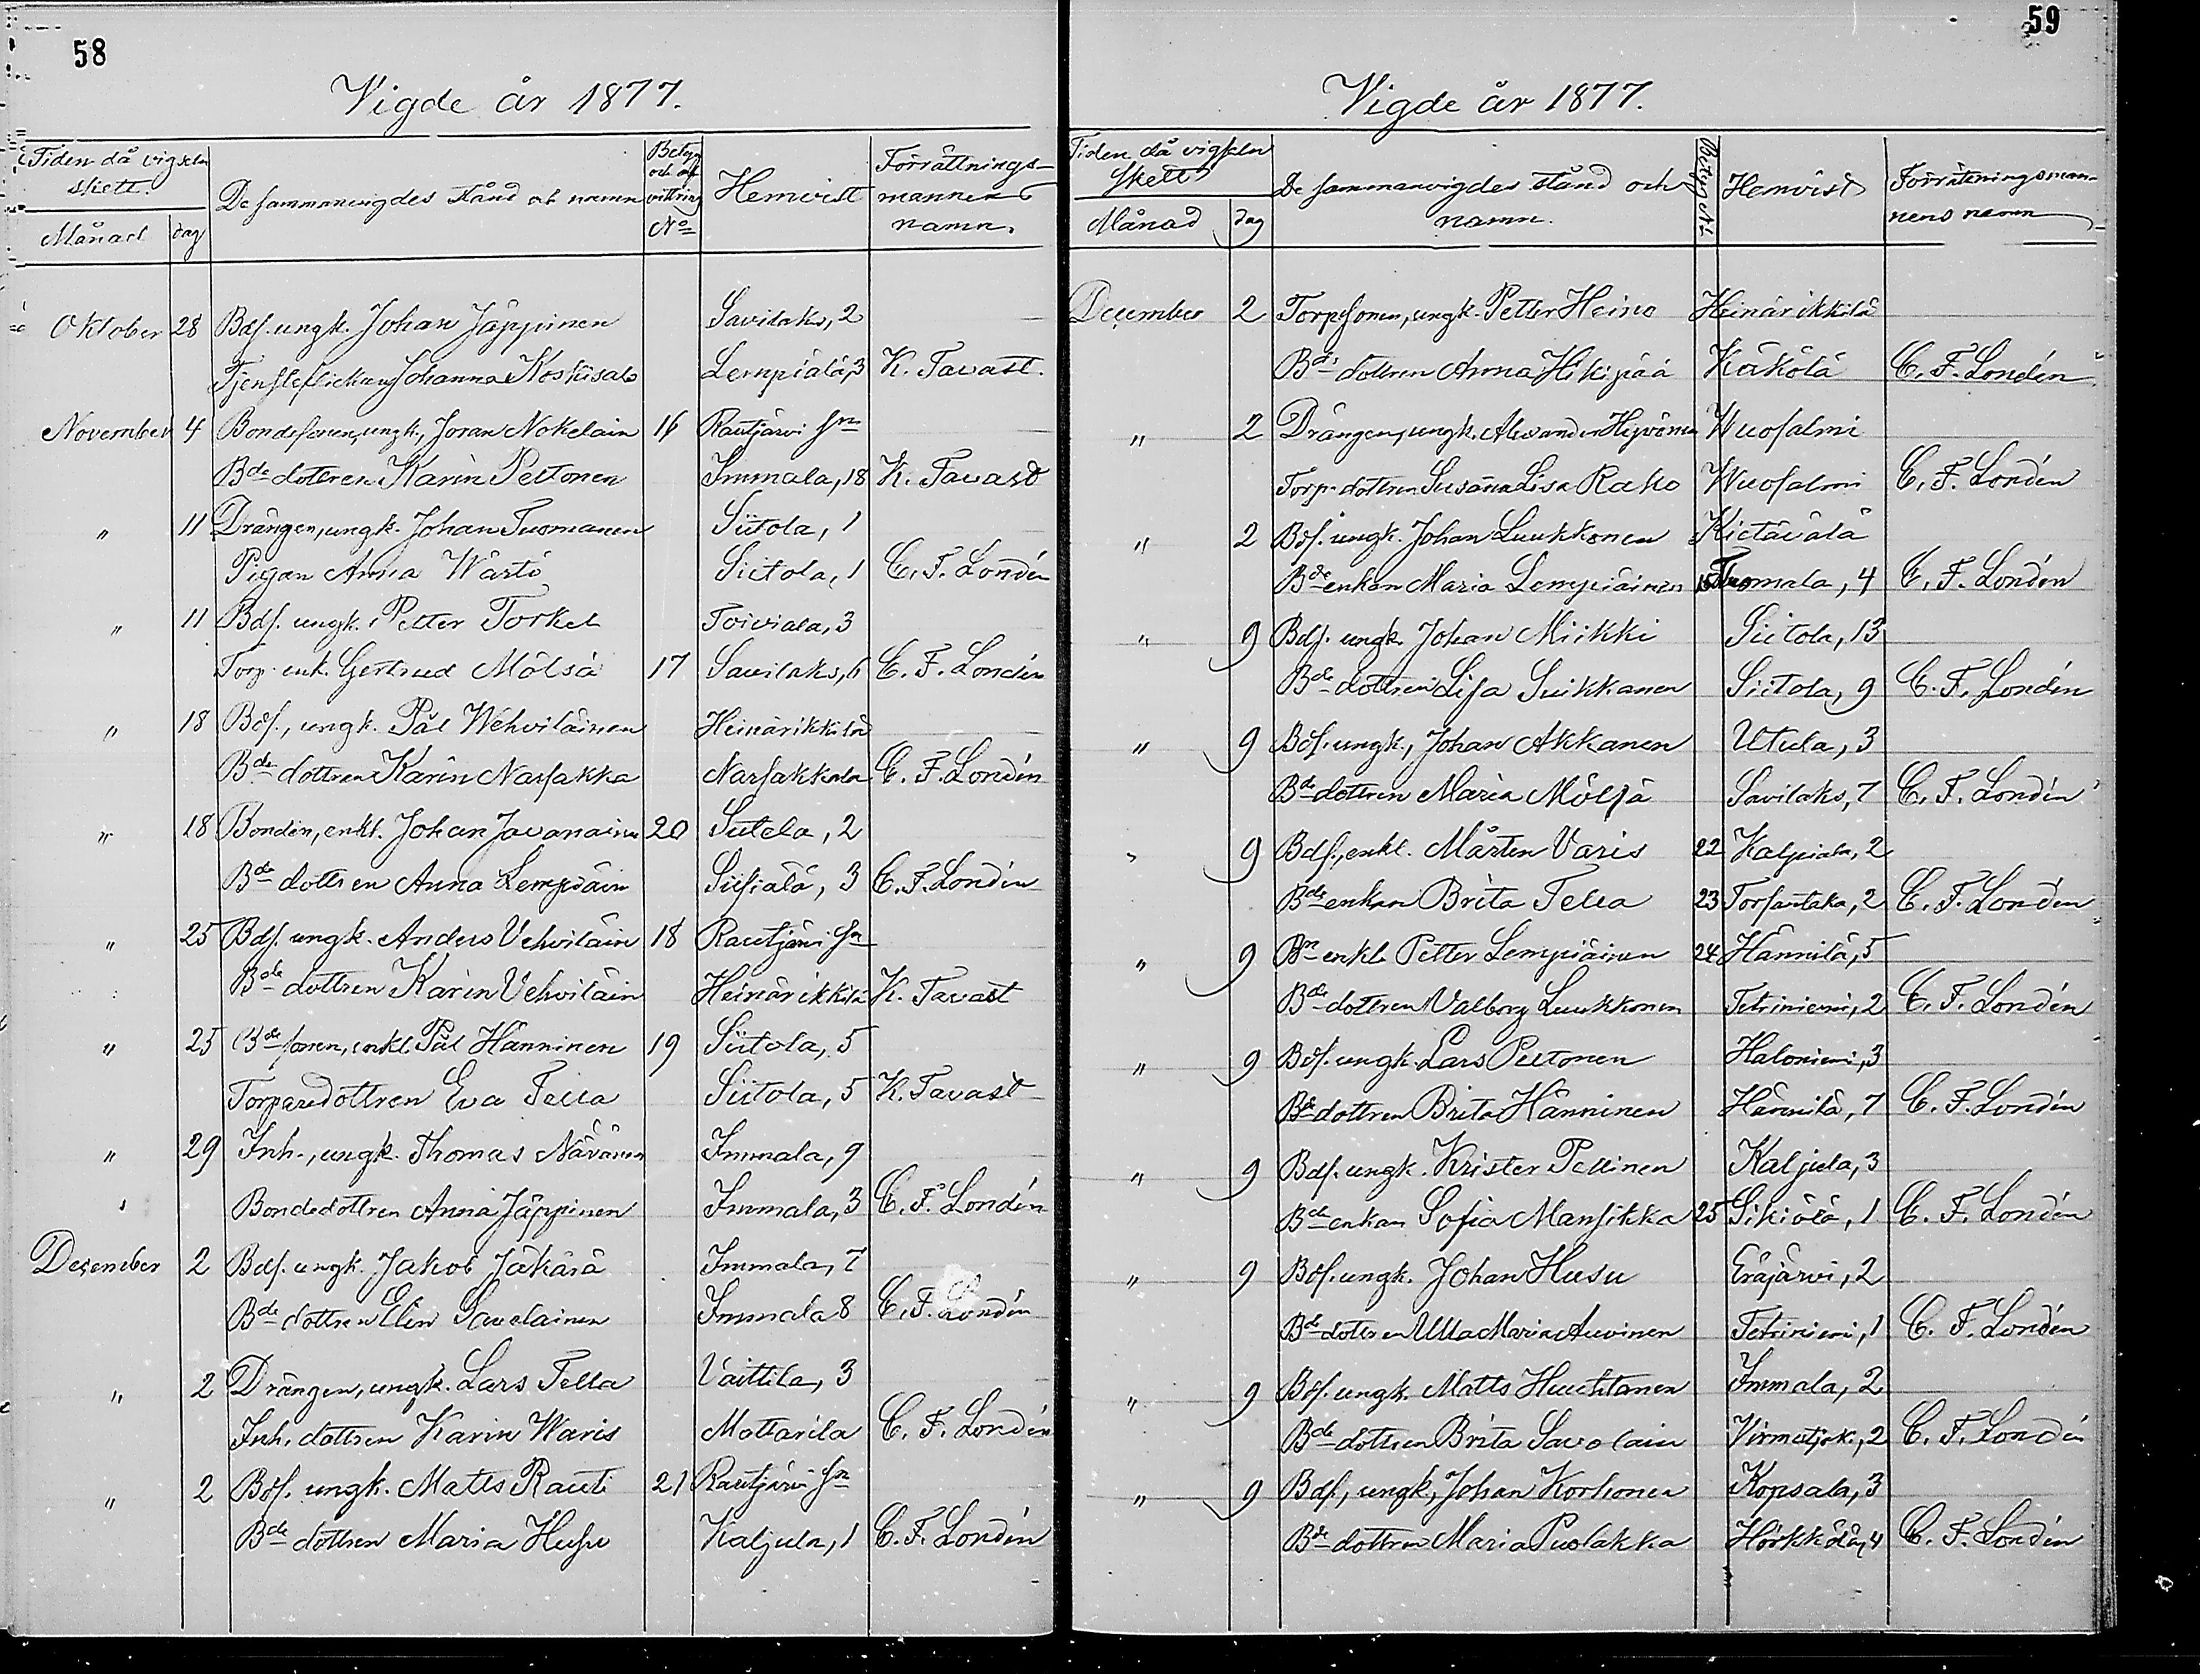 58
Vigde år 1877.
Tiden då vigseln skett.
Månad dag
De sammanvigdes stånd och namn
No
Hemvist
Förrättningsmannens namn.
Oktober 28 Bdf. ungk. Johan Jäppinen Savilaks, 2
Tjensteflickan Johanna Koskisalo Lempiälä, 3 K. Tavast.
November 4 Bondesonen, ungk., Joran Nokelain 16 Rautjärvi sn
Bde dottren Karin Peltonen Immala, 18 K. Tavast
" 11 Drängen, ungk. Johan Tuomanen Siitola, 1
Pigan Anna Wärtö Siitola, 1 C. F. Londén
" 11 Bdf. ungk. Petter Torkel Toiviala, 3
Torp. enk. Gertrud Mölsä 17 Savilaks, 6 C. F. Londén
" 18 Bdf., ungk. Pål Wehviläinen Heinärikkilä
Bde dottren Karin Narsakka Narsakkala C. F. Londén
" 18 Bonden, enkl. Johan Javanainen 20 Sutela, 2
Bde dottren Anna Lempiäin Siisiälä, 3 C. F. Londén
" 25 Bdf. ungk. Anders Vehviläin 18 Rautjärvi sn
Bde dottren Karin Vehviläin Heinärikkilä K. Tavast
" 25 Bde sonen, enkl. Pål Hänninen 19 Siitola, 5
Torparedottren Eva Tella Siitola, 5 K. Tavast
" 29 Inh., ungk. Thomas Näränen Immala, 9
Bondedottren Anna Jäppinen Immala, 3 C. F. Londén
December 2 Bdf. ungk. Jakob Jäkärä Immala, 7
Bde dottren Elin Savolainen Immala 8 C. F. Londén
" 2 Drängen, ungk. Lars Tella Vaittila, 3
Inh. dottren Karin Waris Mattarila C. F. Londén
" 2 Bdf. ungk. Matts Rauti 21 Rautjärvi sn
Bde dottren Maria Husu Kaljula, 1 C. F. Londén
59
Vigde år 1877.
Tiden då vigseln skett
Månad dag
De sammanvigdes stånd och namn.
Betyg No
Hemvist
Förrättningsmannens namn
December 2 Torpsonen, ungk. Petter Heino Heinärikkilä
Bde dottren Anna Hikipää Käkölä C. F. Londén
" 2 Drängen, ungk. Alexander Hyvönen Wuosalmi
Torp. dottren Susanna Lisa Rako Wuosalmi C. F. Londén
" 2 Bdf. ungk. Johan Luukkonen Kietävälä
Bde enkan Maria Lempiäinen 15 Tuomala, 4 C. F. Londén
" 9 Bdf. ungk. Johan Miikki Siitola, 13
Bde dottren Lisa Suikkanen Siitola, 9 C. F. Londén
" 9 Bdf. ungk., Johan Akkanen Utula, 3
Bde dottren Maria Mölsä Savilaks, 7 C. F. Londén
" 9 Bdf., enkl. Mårten Varis 22 Kalpiala, 2
Bde enkan Brita Tella 23 Torsantaka, 2 C. F. Londén
" 9 Bn enkl. Petter Lempiäinen 24 Hännilä, 5
Bde dottren Valborg Luukkonen Tetriniemi, 2 C. F. Londén
" 9 Bdf. ungk. Lars Peltonen Haloniemi, 3
Bde dottren Brita Hänninen Hännilä, 7 C. F. Londén
" 9 Bdf. ungk. Krister Pellinen Kaljula, 3
Bde enkan Sofia Mansikka 25 Sikiölä, 1 C. F. Londén
" 9 Bdf. ungk. Johan Husu Eräjärvi, 2
Bde dottren Ulla Maria Auvinen Tetriniemi, 1 C. F. Londén
" 9 Bdf. ungk. Matts Huuhtanen Immala, 2
Bde dottren Brita Savolain Virmutjok., 2 C. F. Londén
" 9 Bdf., ungk., Johan Korhonen Kopsala, 3
Bde dottren Maria Puolakka Hörkkölä, 4 C. F. Londén